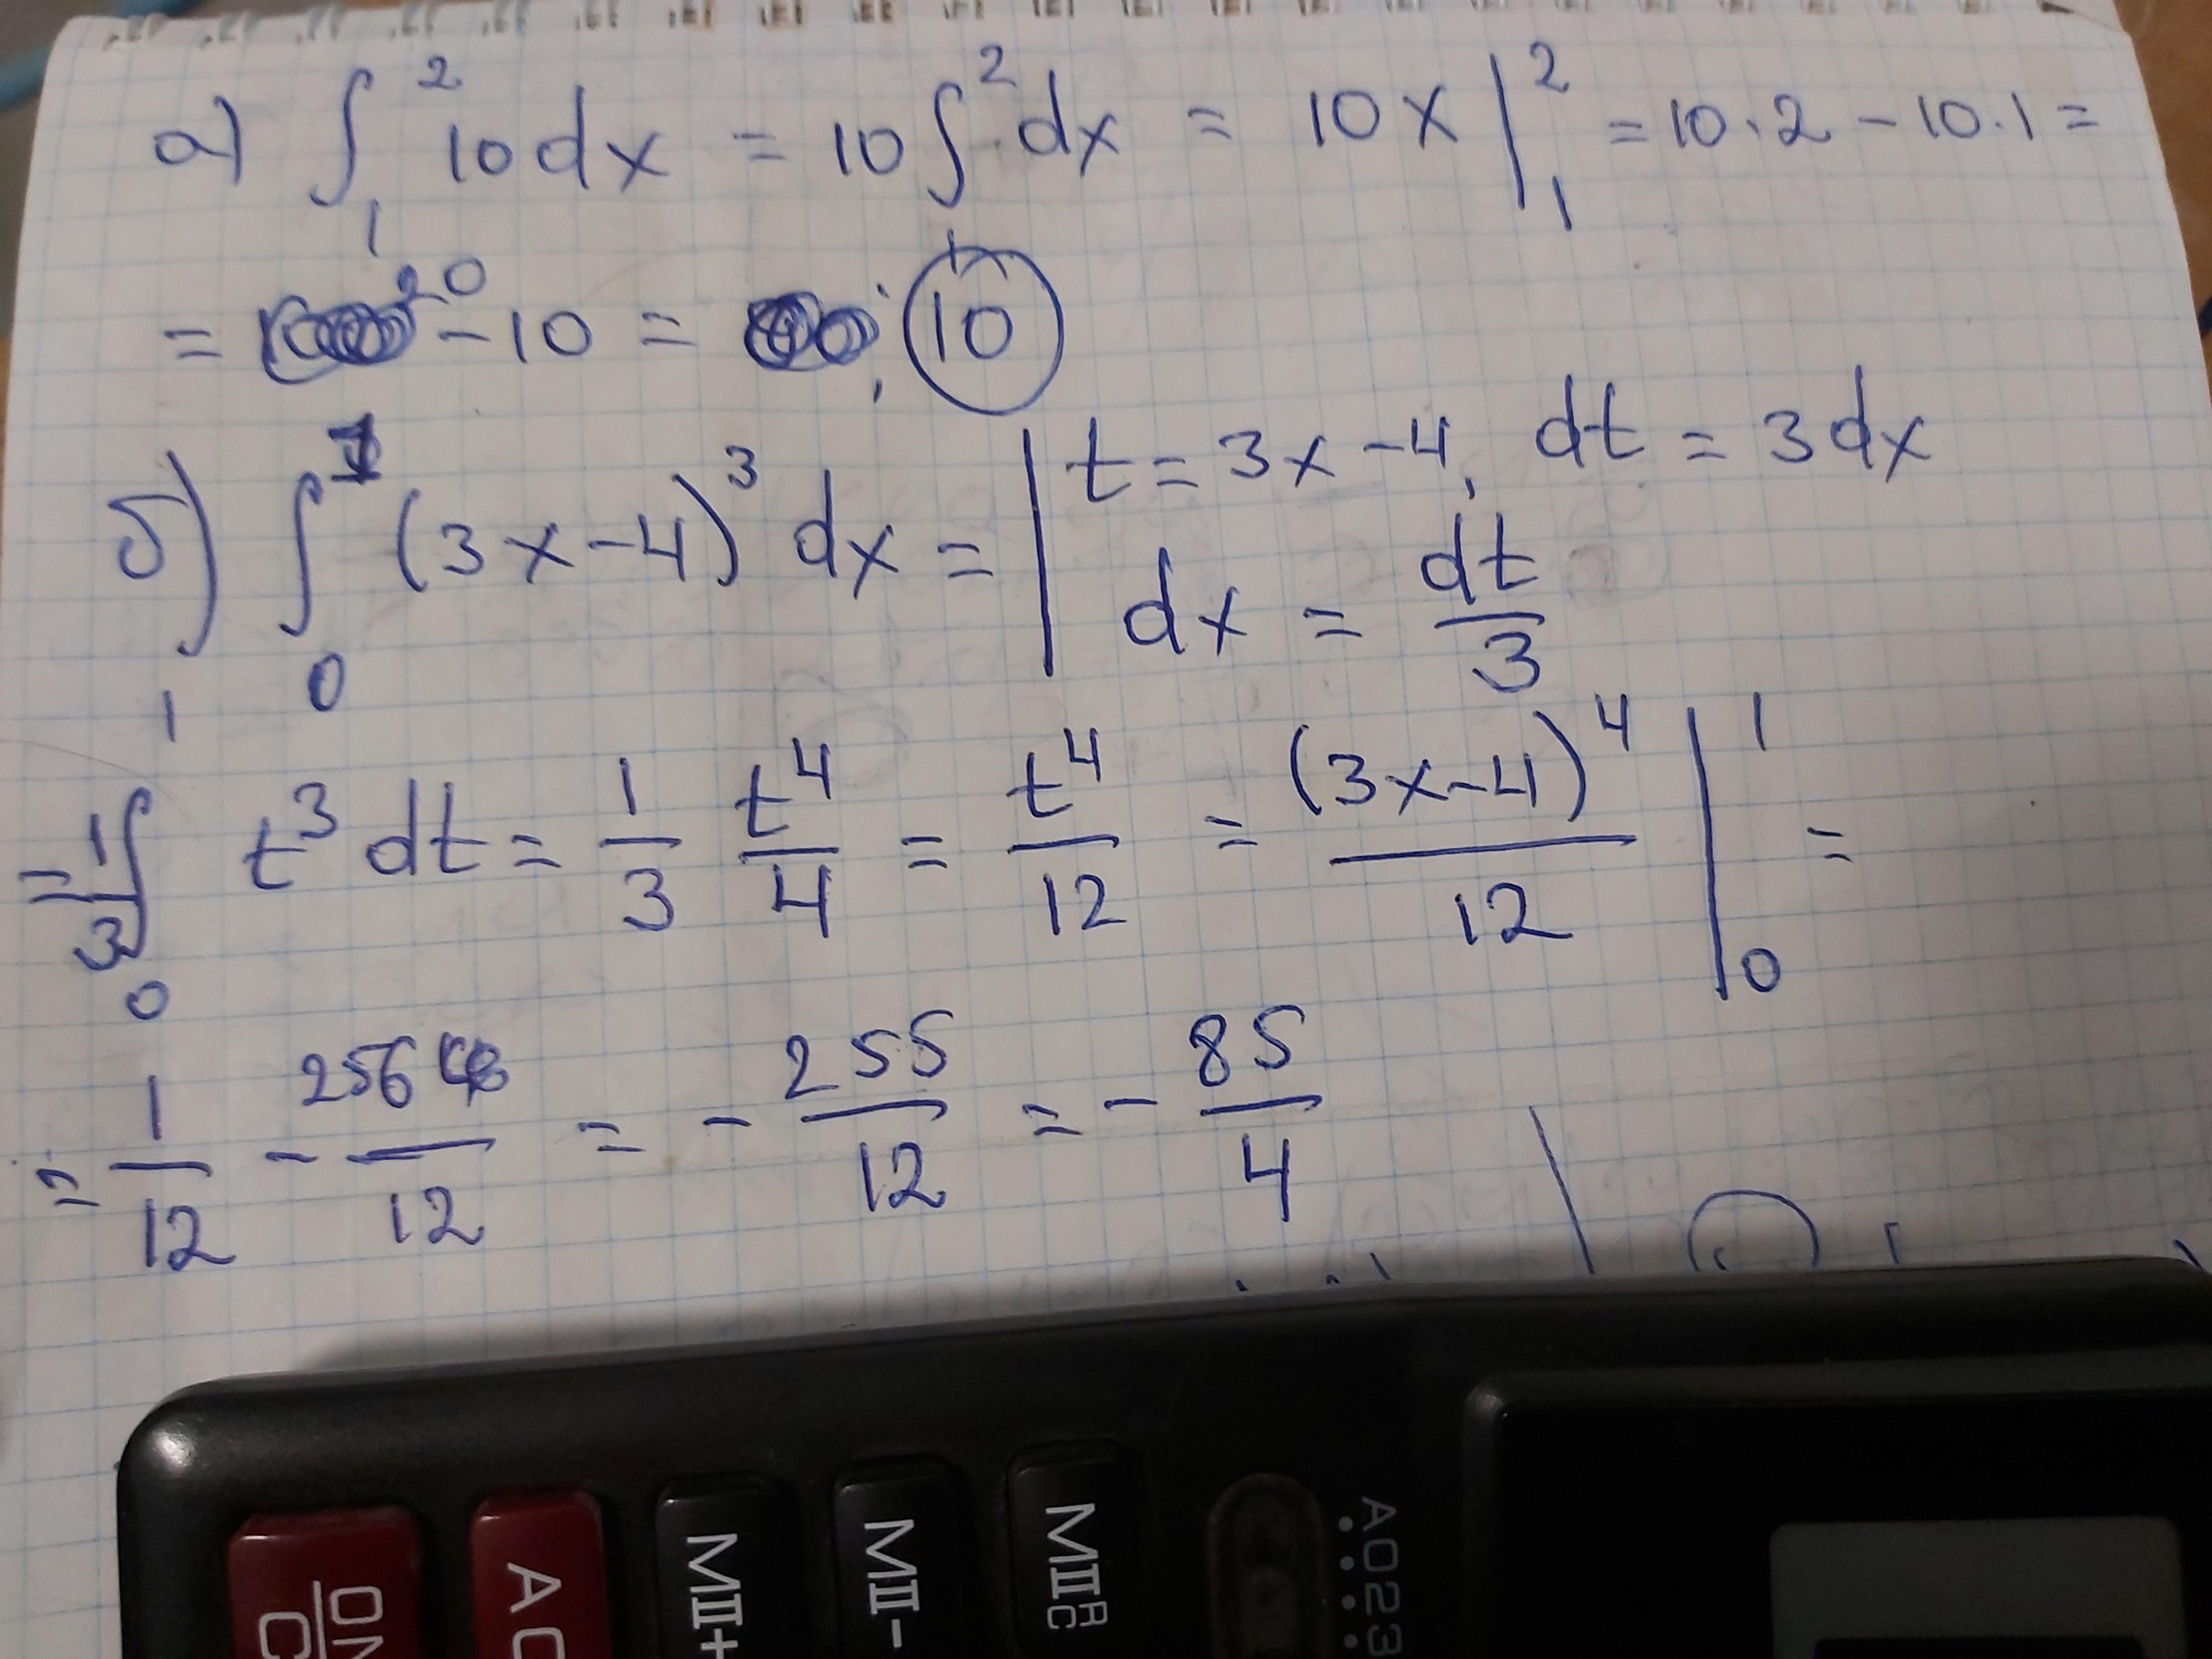 а) ∫₁² 10dx = 10 ∫₁² dx = 10x |₁² = 10·2 - 10·1 =
= 20 - 10 = 10
б) ∫₀¹ (3x-4)³ dx = | t = 3x-4, dt = 3dx
dx = dt/3
= 1/3 ∫₀¹ t³ dt = 1/3 t⁴/4 = t⁴/12 = (3x-4)⁴/12 |₀¹ =
= 1/12 - 256/12 = - 255/12 = - 85/4
ON/C
AC
MII+
MII-
MII R/C
A023